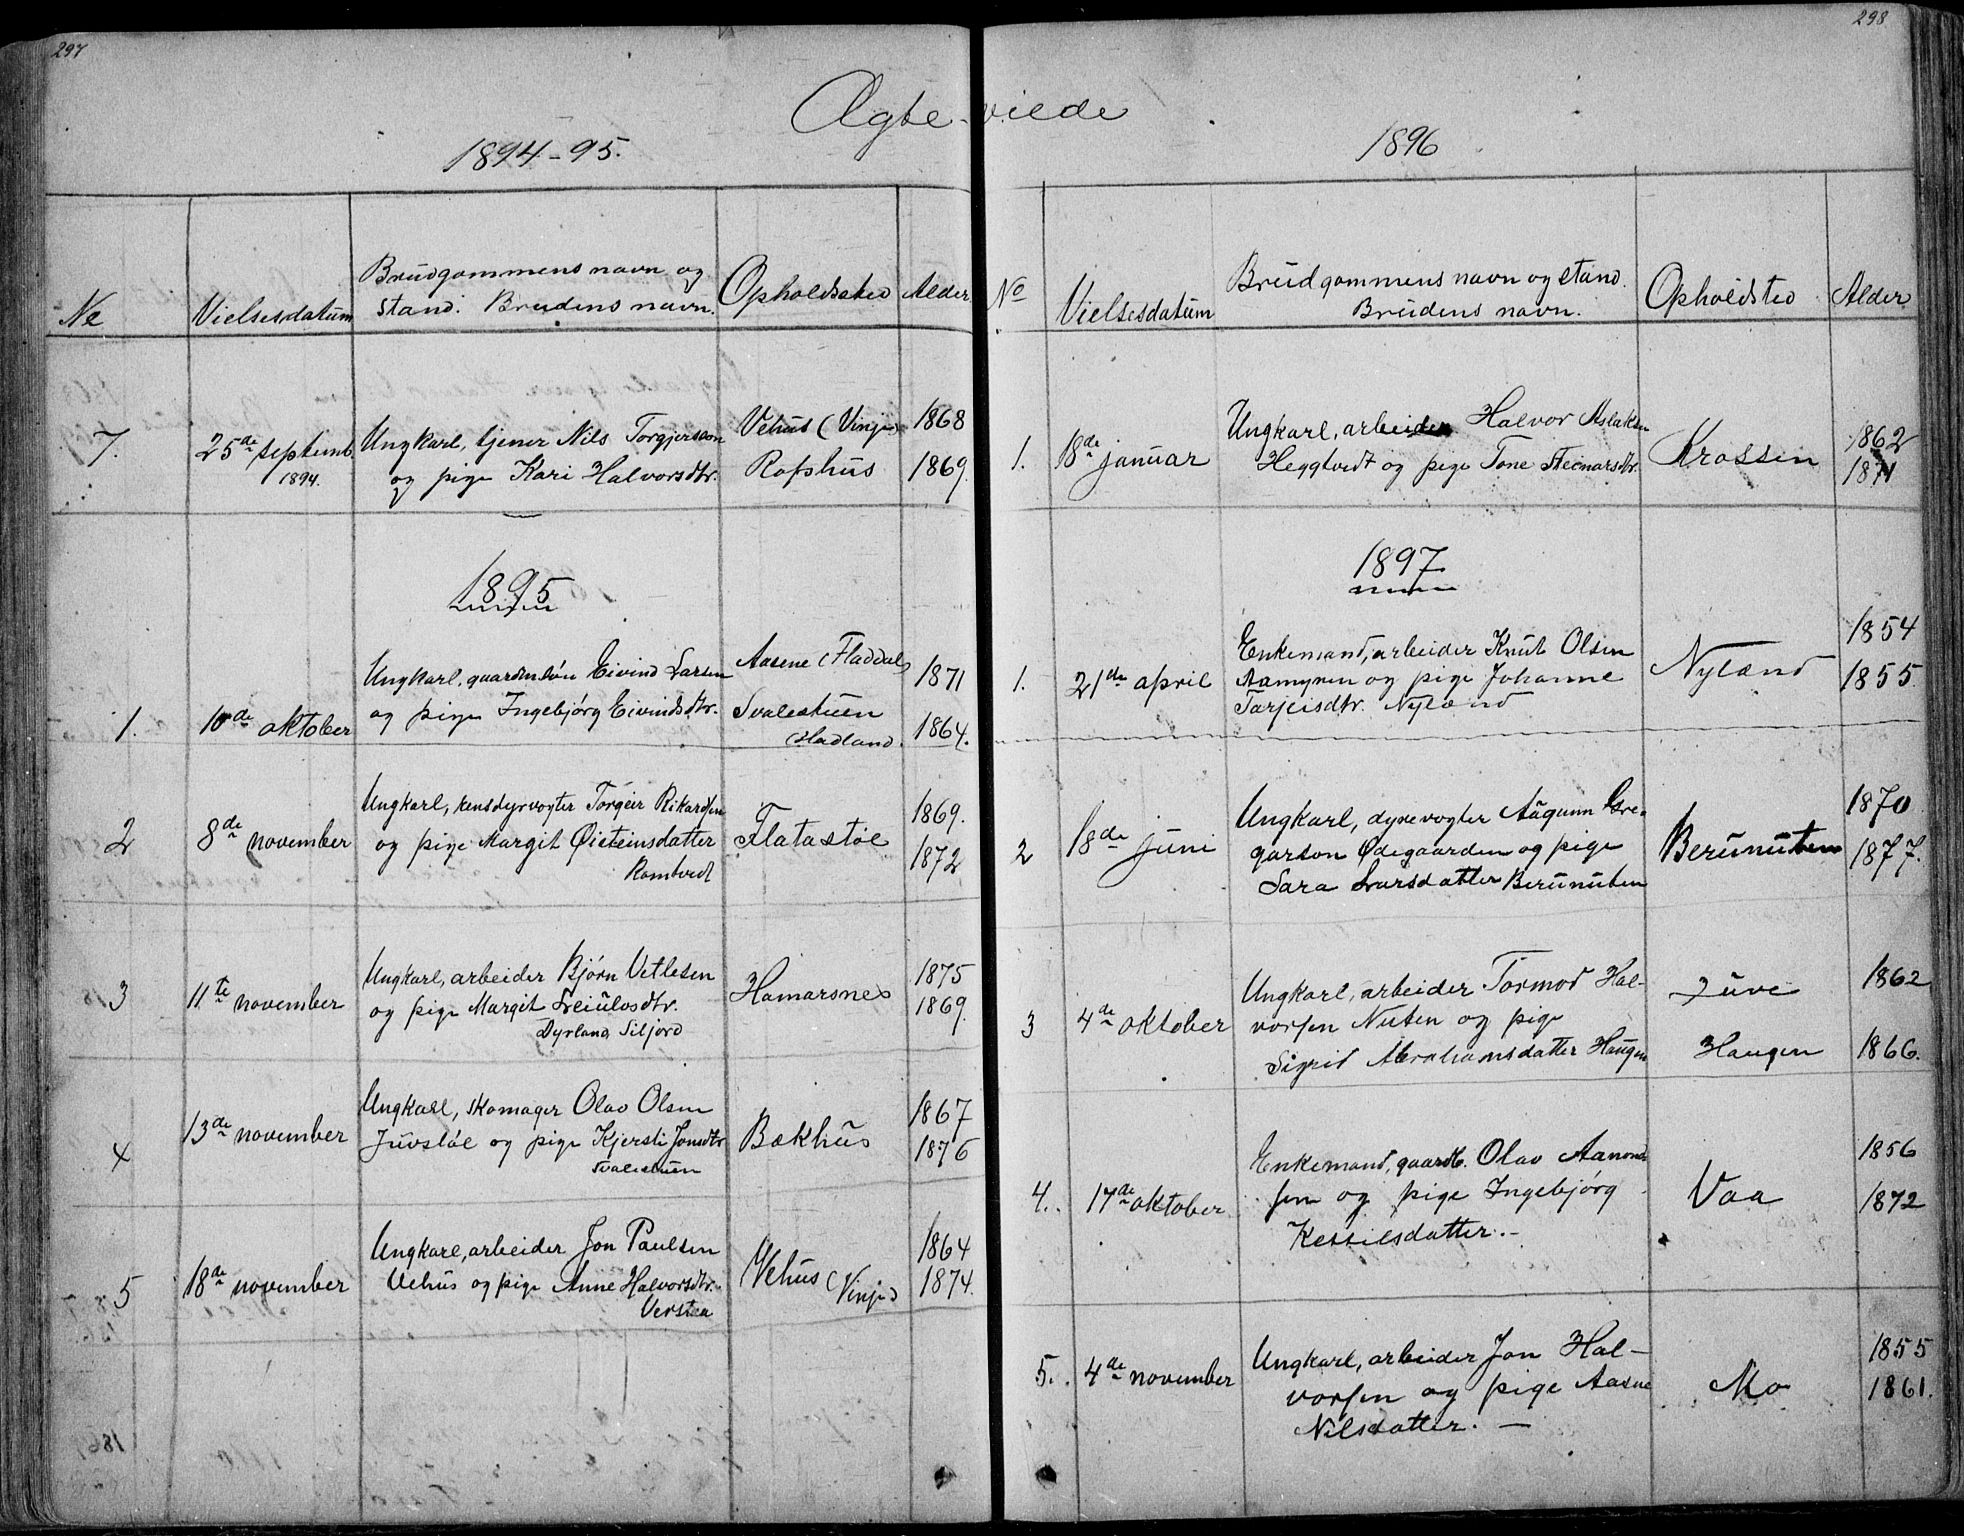 297
298
Ægte-viede
1894-95.
No
Vielsesdatum
Brudgommens navn og
stand. Brudens navn.
Opholdsted
Alder
7.
25de septemb.
1894.
Ungkarl, tjener Nils Torgjersson
og pige Kari Halvorsdtr.
Vehus (Vinje)
Rofshus
1868
1869.
1895
1.
10de oktober
Ungkarl, gaardm.søn Eivind Larsen
og pige Ingebjørg Eivindsdtr.
Aasene (Fladdal)
Svalestuen
(Hadland.
1871
1864.
2
8de november
Ungkarl, rensdyrvogter Torgeir Rikardsen
og pige Margit Øisteinsdatter
Romtvedt
Flatastøe
1869.
1872
3
11te november
Ungkarl, arbeider Bjørn Vetlesen
og pige Margit Sveiulvsdtr.
Dyrland, Siljord
Hamarsnes
1875
1869.
4
13de november
Ungkarl, skomager Olav Olsen
Juvstøe og pige Kjersti Jonsdtr
Svalestuen
Bækhus
1867
1876
5
18de november
Ungkarl, arbeider Jon Paulsen
Vehus og pige Anne Halvorsdtr.
Verstea
Vehus (Vinje)
1864
1874.
1896
No
Vielsesdatum
Brudgommens navn og stand.
Brudens navn.
Opholdsted
Alder
1.
18de januar
Ungkarl, arbeider Halvor Aslaksen
Heggtvedt og pige Tone Steinarsdtr.
Krossen
1862
1871
1897
1.
21de april
Enkemand, arbeider Knut Olsen
Aamyren og pige Johanne
Tarjeisdtr. Nyland
Nyland
1854
1855
2
18de juni
Ungkarl, dyrevogter Aagunn Gre-
garson Ødegaarden og pige
Sara Larsdatter Berunuten
Berunuten
1870
1877.
3
4de oktober
Ungkarl, arbeider Tormod Hal-
vorsen Nuten og pige
Sigrid Abrahamsdatter Haugen
Juve
Haugen
1862
1866.
4.
17de oktober
Enkemand, gaardb. Olav Aanond-
sen og pige Ingebjørg
Kettilsdatter.-
Vaa
1856
1872
5.
4de november
Ungkarl, arbeider Jon Hal-
vorsen og pige Aasne
Nilsdatter. -
Mo
1855
1861.